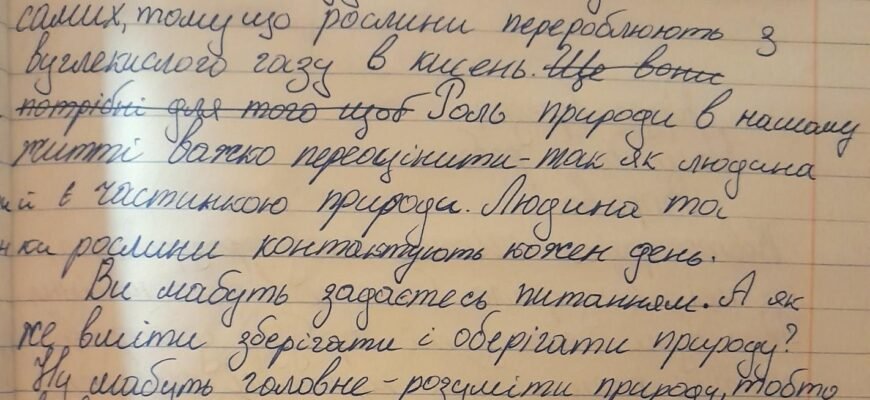 самих, тому що рослини перероблюють з
вуглекислого газу в кисень. Ще вони
потрібні для того щоб Роль природи в нашому
житті важко переоцінити - так як людина
й є частинкою природи. Людина та
рослини контактують кожен день.
Ви мабуть задаєтесь питанням. А як
же вміти зберігати і оберігати природу?
Ну мабуть головне - розуміти природу, тобто